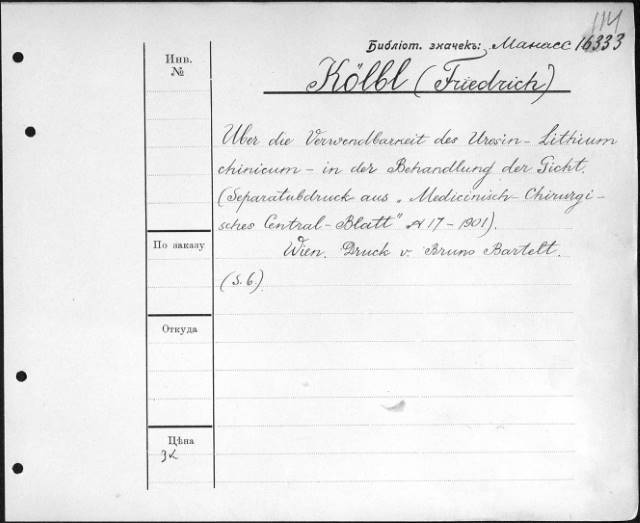 114
Библіот. значекъ: Манасс 16333
Kölbl (Friedrich)
Инв.
№
Über die Verwendbarkeit des Urosin-Lithium
chinicum - in der Behandlung der Gicht.
(Separatabdruck aus „Medicinisch-Chirurgi-
sches Central-Blatt" № 17-1901).
По заказу
Wien. Druck v. Bruno Bartelt.
(S. 6.)
Откуда
Цѣна